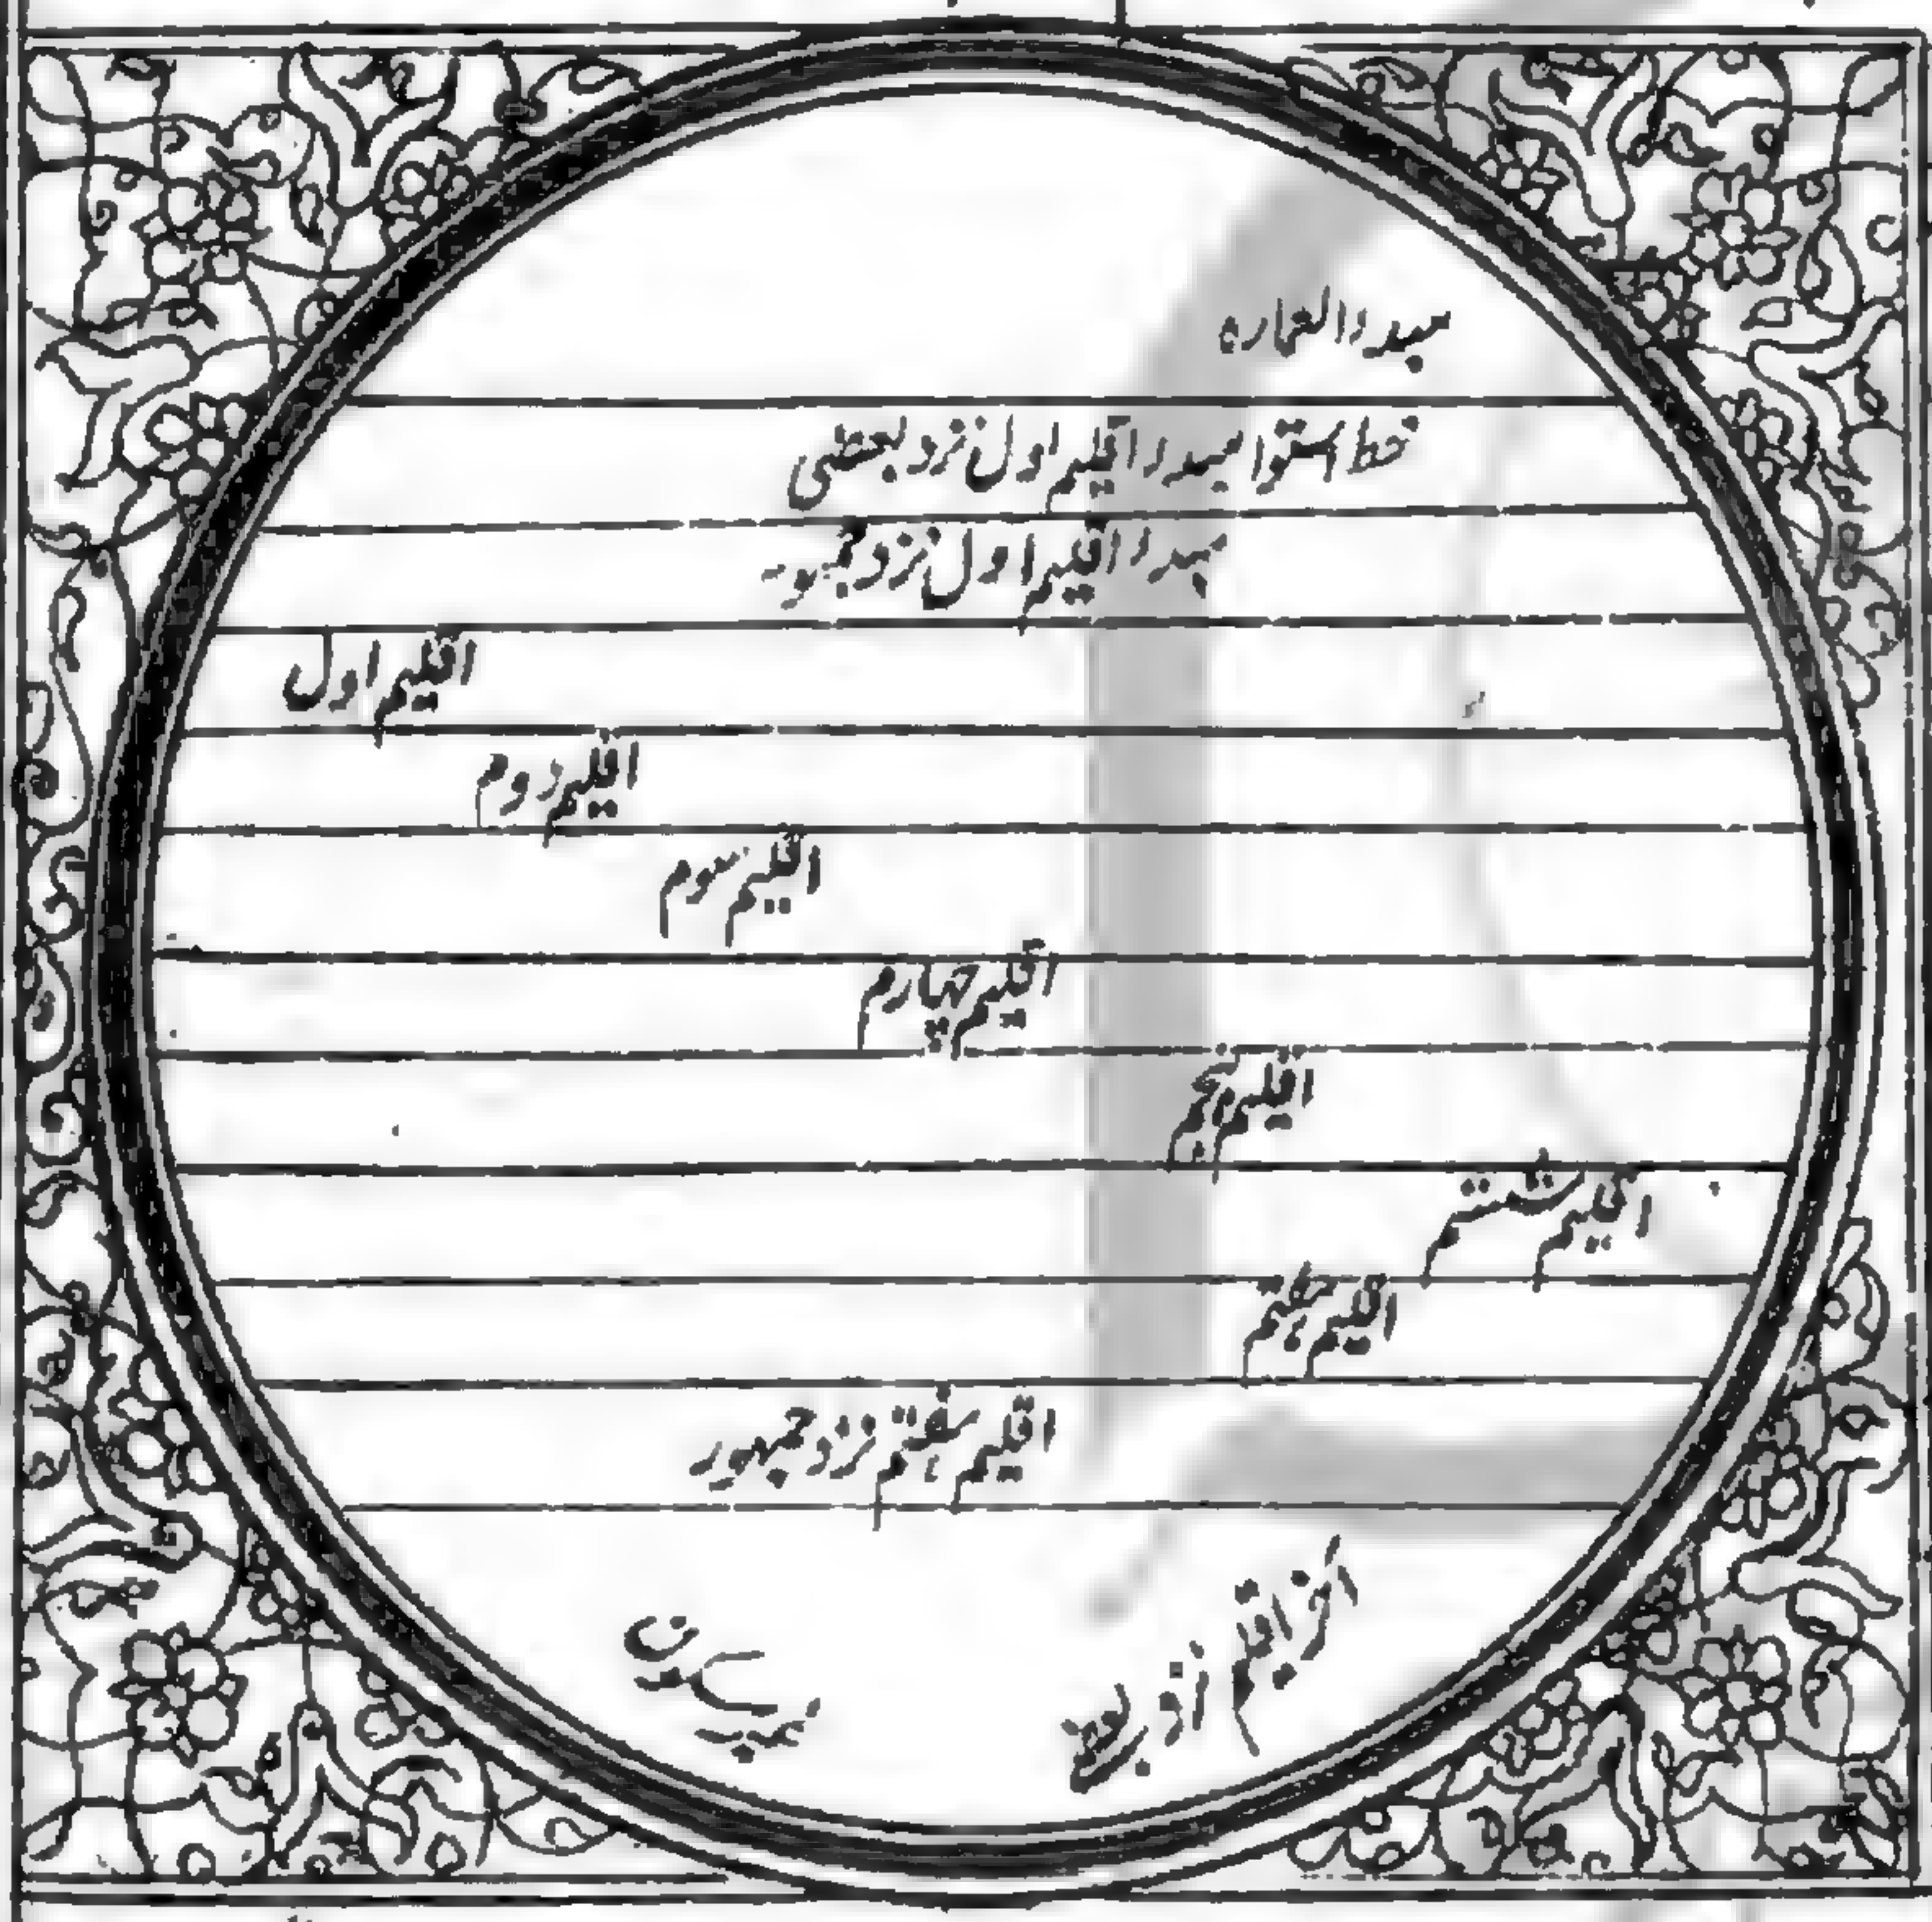 مبدء العماره
خط استوا مبدء اقلیم اول نزد بعضی
مبدء اقلیم اول نزد جمهور
اقلیم اول
اقلیم دوم
اقلیم سوم
اقلیم چهارم
اقلیم پنجم
اقلیم ششتم
اقلیم هفتم
اقلیم هفتم نزد جمهور
آخر اقلیم نزد بعضی